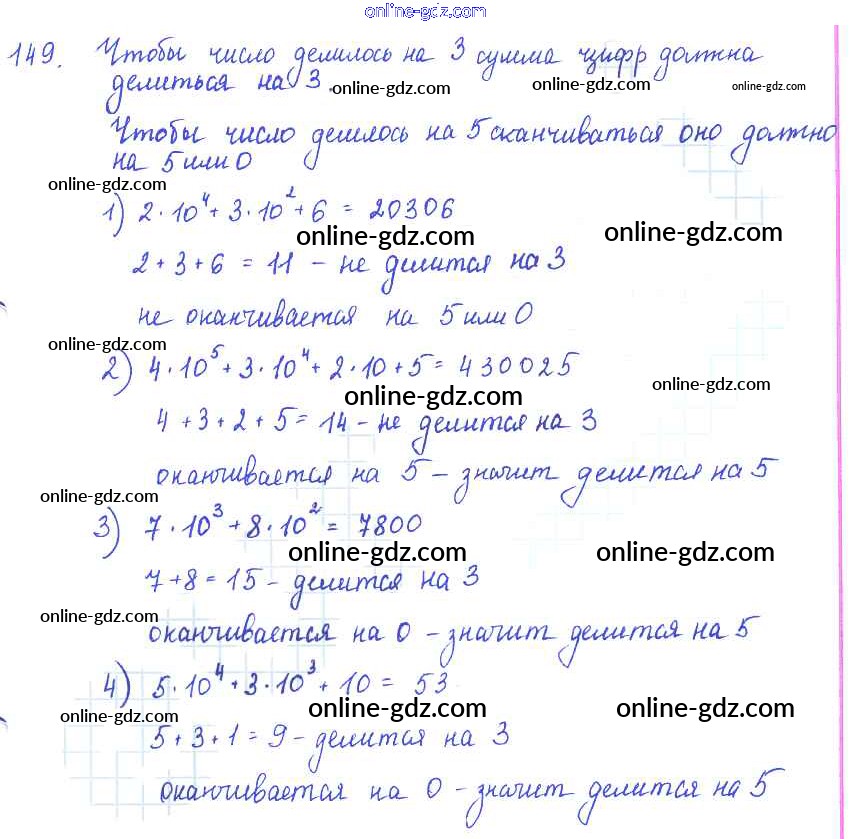 online-gdz.com
149. Чтобы число делилось на 3 сумма цифр должна
делиться на 3.
online-gdz.com online-gdz.com online-gdz.com
Чтобы число делилось на 5 сканчиваться оно должно
на 5 или 0
online-gdz.com
1) 2·10⁴+3·10²+6 = 20306
online-gdz.com online-gdz.com
2+3+6 = 11 – не делится на 3
не оканчивается на 5 или 0
online-gdz.com
2) 4·10⁵+3·10⁴+2·10+5= 430025
online-gdz.com online-gdz.com
4+3+2+5= 14 – не делится на 3
оканчивается на 5 – значит делится на 5
online-gdz.com
3) 7·10³+8·10² = 7800
online-gdz.com online-gdz.com
7+8 = 15 – делится на 3
online-gdz.com
оканчивается на 0 – значит делится на 5
4) 5·10⁴+3·10³+10 = 53
online-gdz.com online-gdz.com online-gdz.com
5+3+1 = 9 – делится на 3
оканчивается на 0 – значит делится на 5